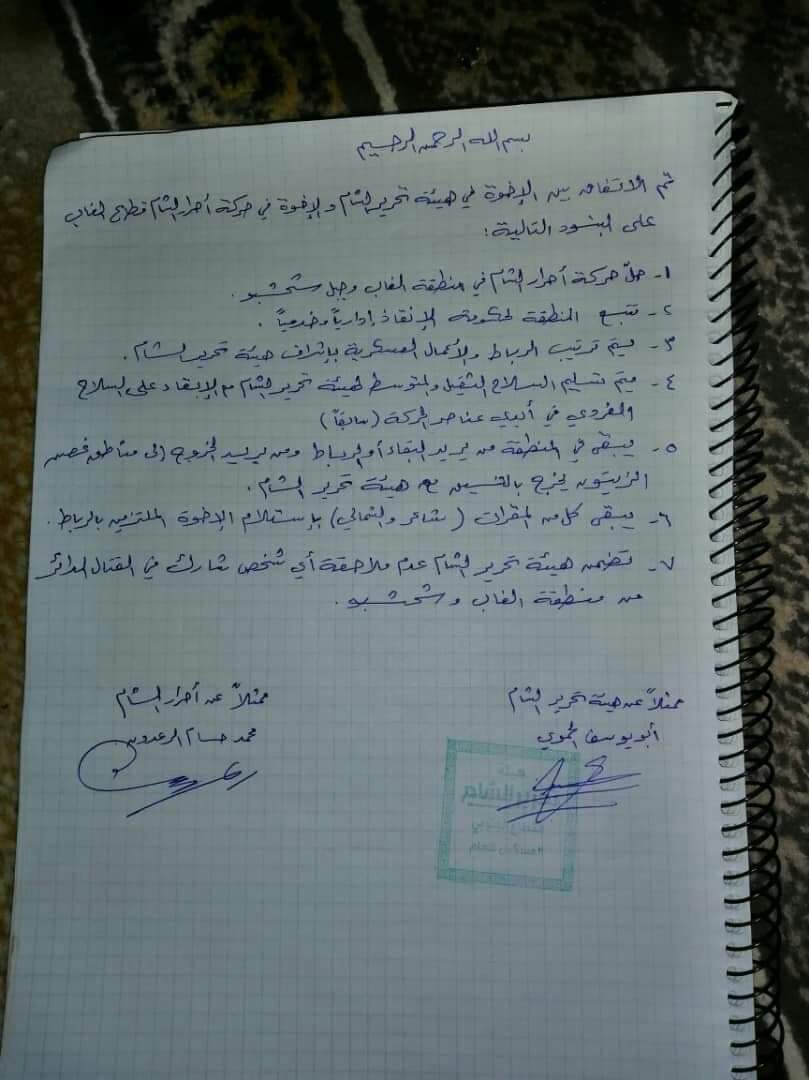 بسم الله الرحمن الرحيم
تم الاتفاق بين الإخوة في هيئة تحرير الشام والإخوة في حركة أحرار الشام قطاع الغاب
على البنود التالية:
١- حلّ حركة أحرار الشام في منطقة الغاب وجبل شحشبو.
٢- تتبع المنطقة لحكومة الإنقاذ إدارياً وخدمياً.
٣- يتم ترتيب الرباط والأعمال العسكرية بإشراف هيئة تحرير الشام.
٤- يتم تسليم السلاح الثقيل والمتوسط لهيئة تحرير الشام مع الإبقاء على السلاح
الفردي في أيدي عناصر الحركة (سابقاً)
٥- يبقى في المنطقة من يريد البقاء أو الرباط ومن يريد الخروج إلى مناطق غصن
الزيتون يخرج بالتنسيق مع هيئة تحرير الشام.
٦- يبقى كل من المقرات (شاعر والشمالي) بإستلام الإخوة الملتزمين بالرباط.
٧- تضمن هيئة تحرير الشام عدم ملاحقة أي شخص شارك في القتال الدائر
من منطقة الغاب وشحشبو.
ممثلاً عن هيئة تحرير الشام
أبو يوسف الحموي
ممثلاً عن أحرار الشام
محمد حسام الرعدون